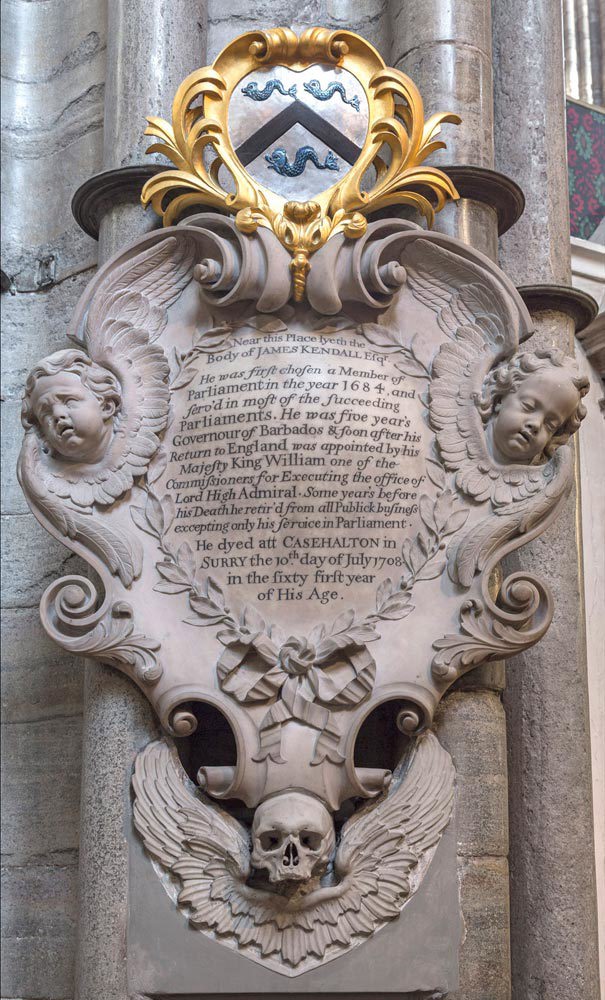 Near this Place lyeth the
Body of JAMES KENDALL Esqr.
He was first chosen a Member of
Parliament in the year 1684, and
serv'd in most of the succeeding
Parliaments. He was five year's
Governour of Barbados & soon after his
Return to England was appointed by his
Majesty King William one of the
Commissioners for Executing the office of
Lord High Admiral. Some years before
his Death he retir'd from all Publick business
excepting only his service in Parliament.
He dyed att CASEHALTON in
SURRY the 10th day of July 1708
in the sixty first year
of His Age.